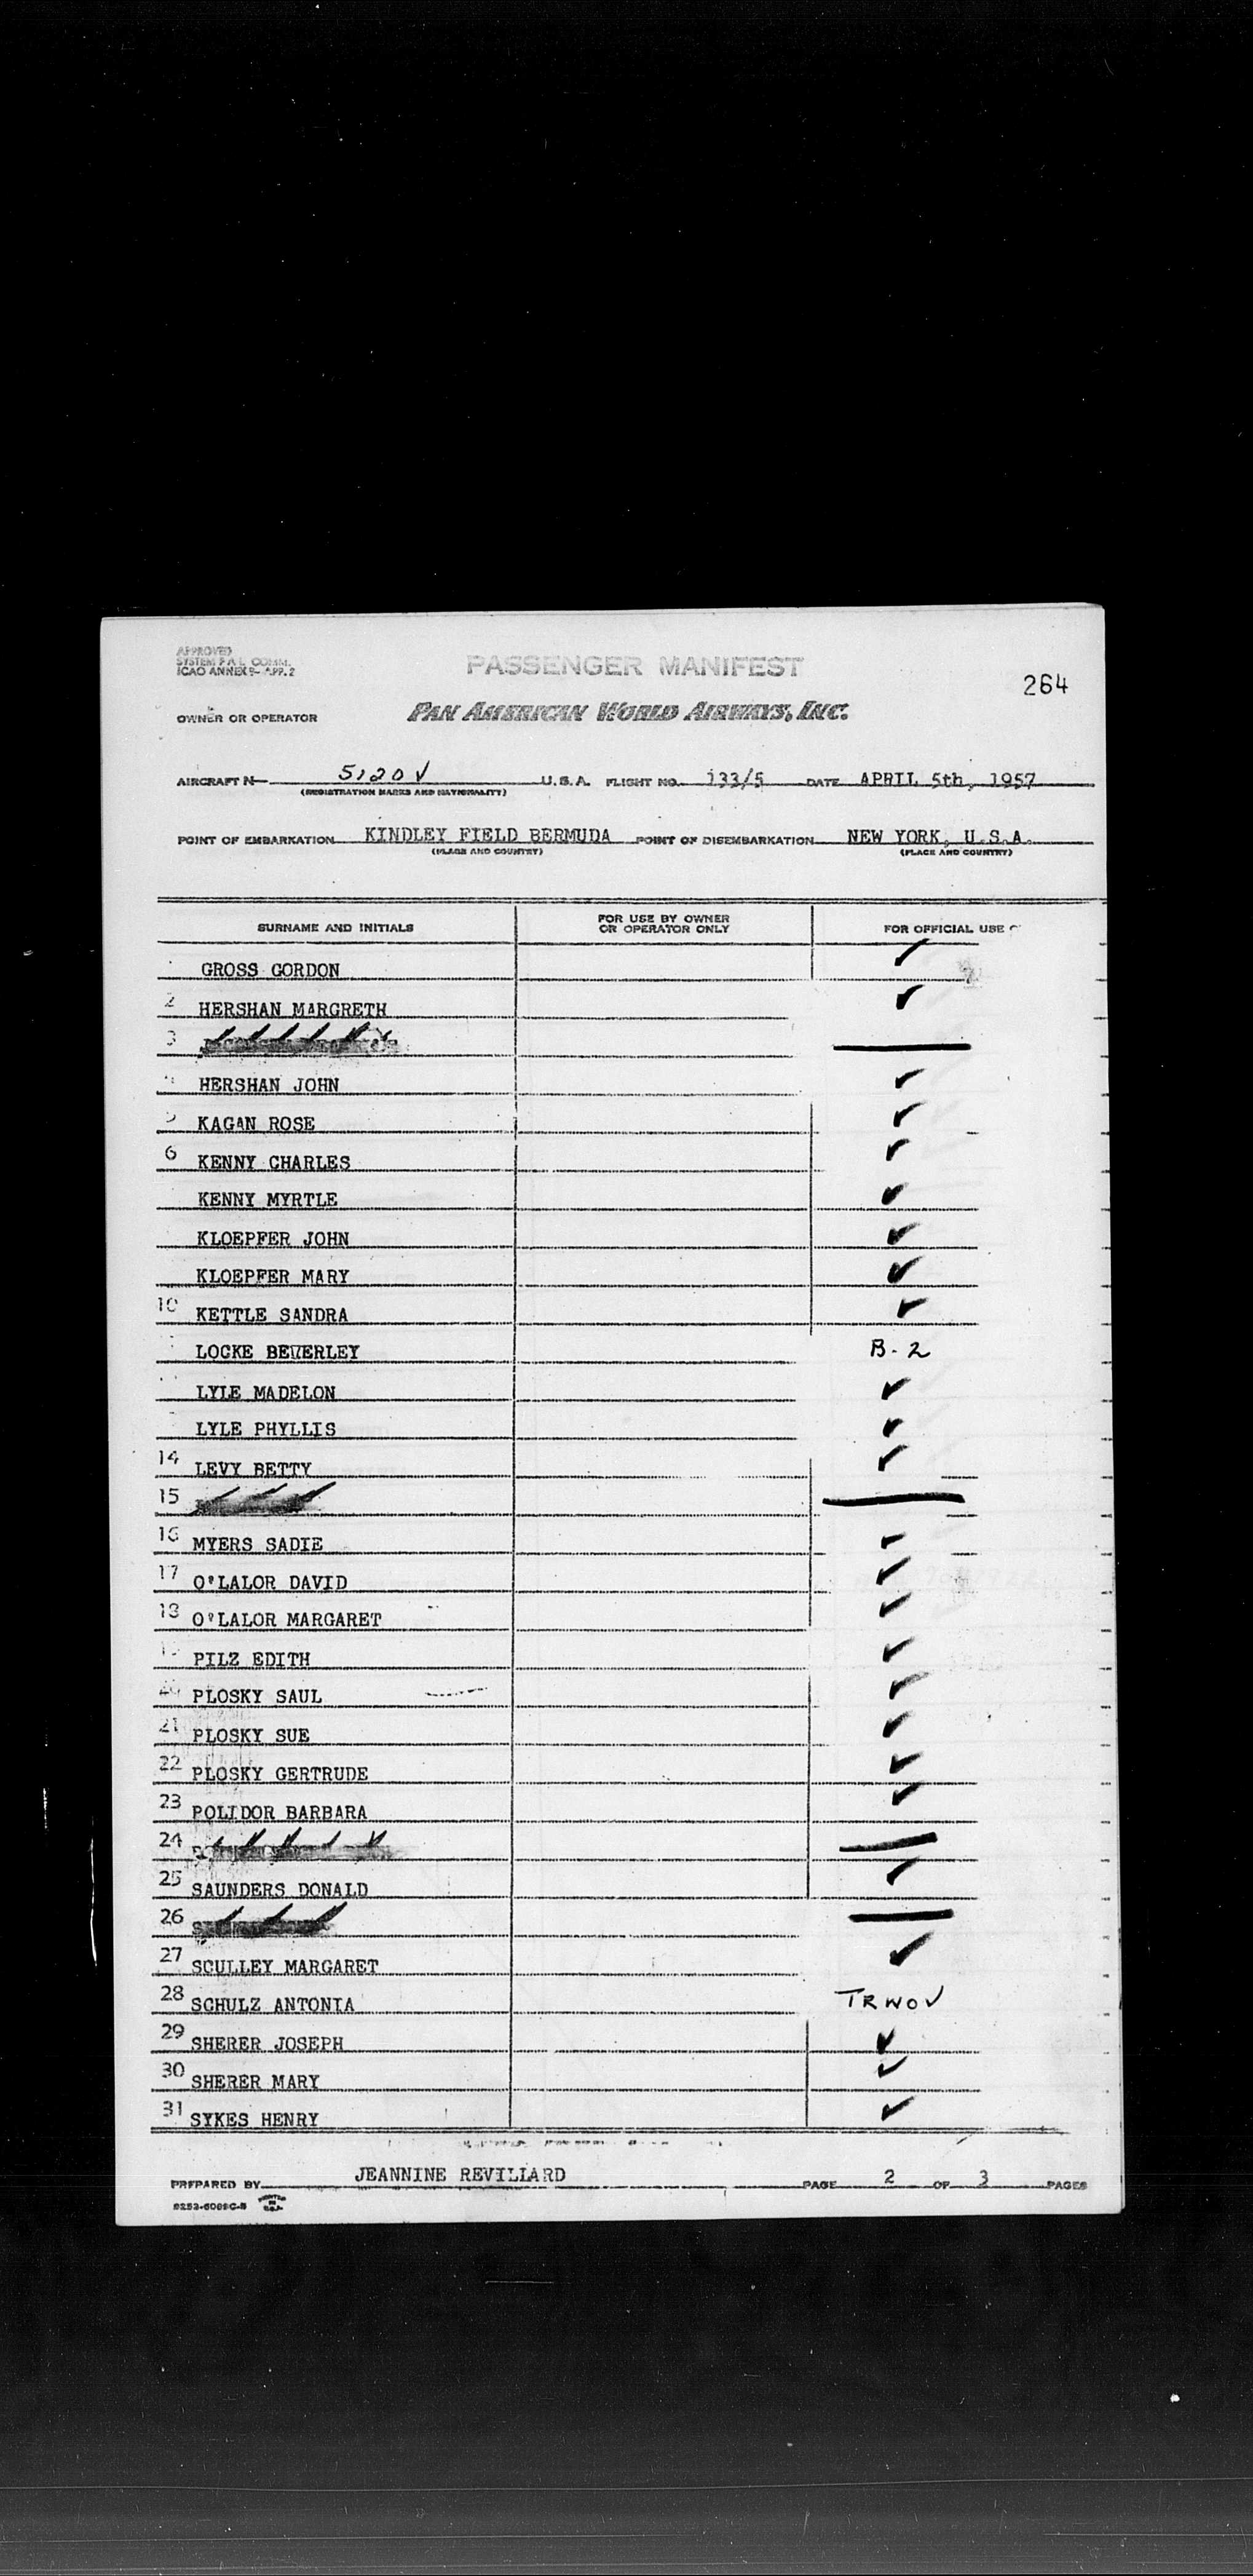 APPROVED
SYSTEM P.A.L. COMM.
ICAO ANNEX 9- APP. 2
PASSENGER MANIFEST
264
OWNER OR OPERATOR PAN AMERICAN WORLD AIRWAYS, INC.
AIRCRAFT N— 5120V U.S.A. FLIGHT NO. 133/5 DATE APRIL 5th, 1957
(REGISTRATION MARKS AND NATIONALITY)
POINT OF EMBARKATION KINDLEY FIELD BERMUDA POINT OF DISEMBARKATION NEW YORK, U.S.A.
(PLACE AND COUNTRY) (PLACE AND COUNTRY)
SURNAME AND INITIALS FOR USE BY OWNER OR OPERATOR ONLY FOR OFFICIAL USE
GROSS GORDON ✓
2 HERSHAN MARGRETH ✓
3
4 HERSHAN JOHN ✓
5 KAGAN ROSE ✓
6 KENNY CHARLES ✓
KENNY MYRTLE ✓
KLOEPFER JOHN ✓
KLOEPFER MARY ✓
10 KETTLE SANDRA ✓
LOCKE BEUERLEY B-2
LYLE MADELON ✓
LYLE PHYLLIS ✓
14 LEVY BETTY ✓
15
16 MYERS SADIE ✓
17 O'LALOR DAVID ✓
18 O'LALOR MARGARET ✓
19 PILZ EDITH ✓
20 PLOSKY SAUL ✓
21 PLOSKY SUE ✓
22 PLOSKY GERTRUDE ✓
23 POLIDOR BARBARA ✓
24
25 SAUNDERS DONALD ✓
26
27 SCULLEY MARGARET ✓
28 SCHULZ ANTONIA TRWOV
29 SHERER JOSEPH ✓
30 SHERER MARY ✓
31 SYKES HENRY ✓
PREPARED BY JEANNINE REVILLARD PAGE 2 OF 3 PAGES
PRINTED IN U.S.A.